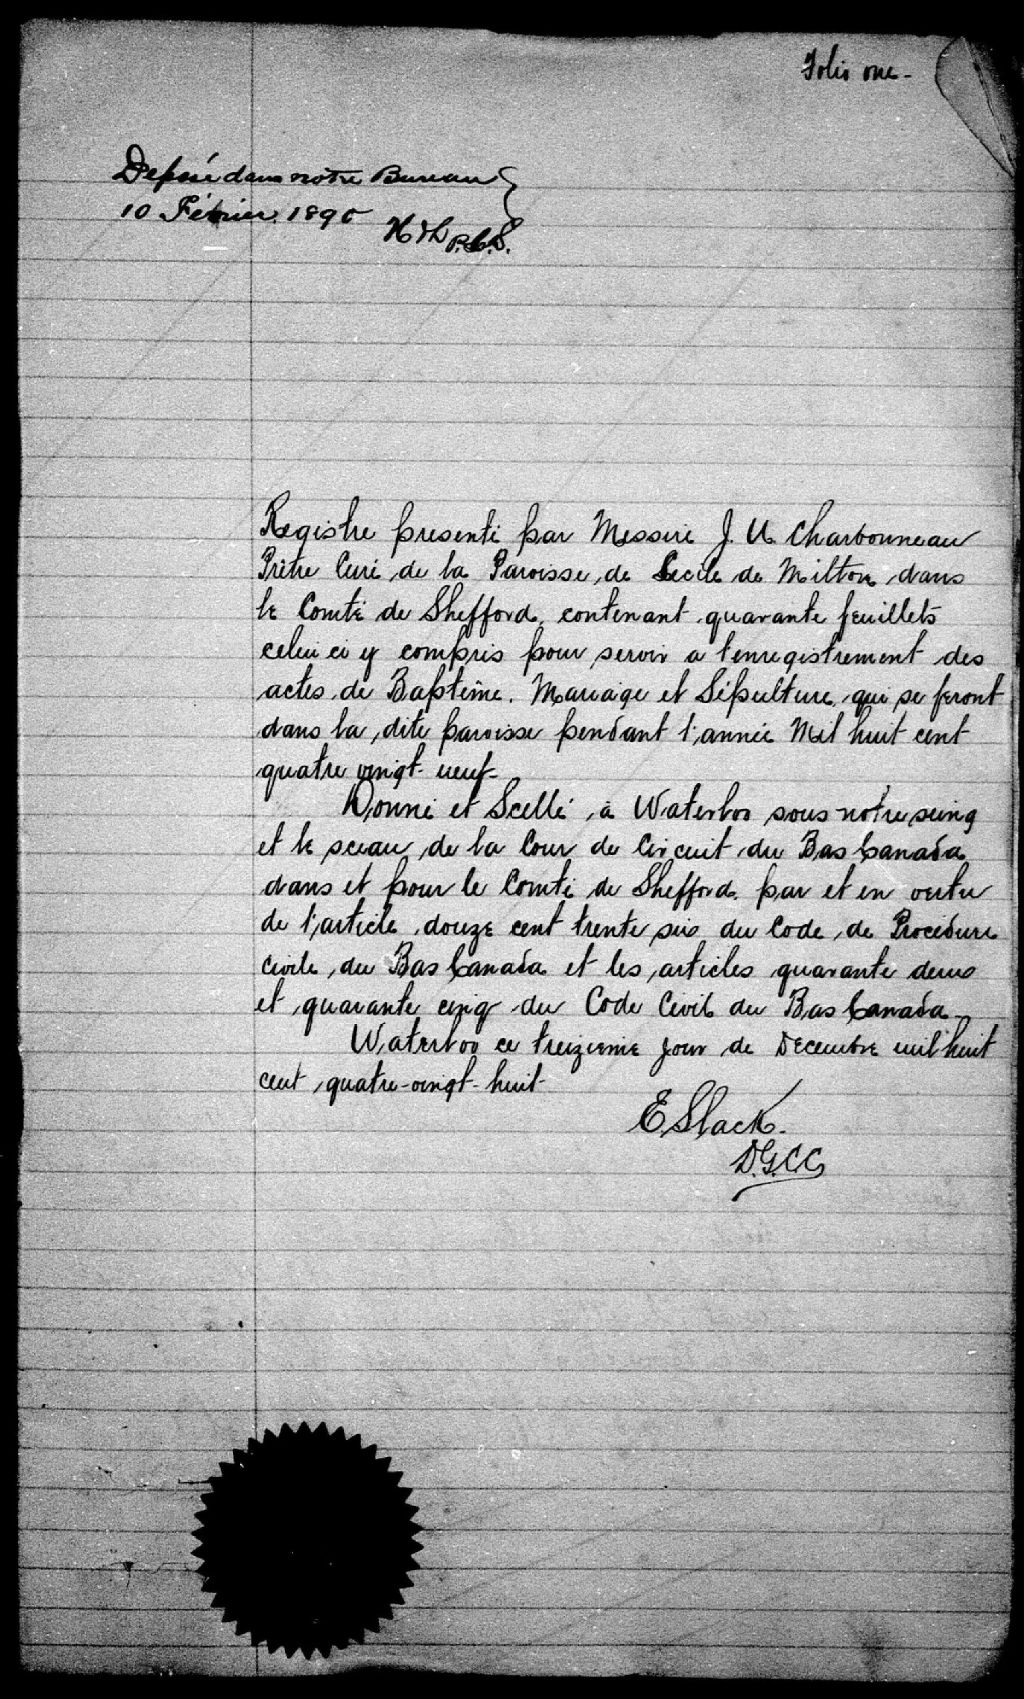 Folio one-
Déposé dans notre Bureau
10 Février 1890
P.C.S.
Registre presenté par Messire J. U. Charbonneau
Prêtre Curé de la Paroisse de Cecile de Milton dans
le Comté de Shefford, contenant quarante feuillets
celui ci y compris pour servir a l'enregistrement des
actes de Baptême. Mariage et Sépulture qui se feront
dans la dite paroisse pendant l'année Mil huit cent
quatre vingt neuf-
Donné et Scellé à Waterloo sous notre seing
et le sceau de la Cour de Circuit du Bas Canada
dans et pour le Comté de Shefford par et en vertu
de l'article douze cent trente six du Code de Procedure
Civile du Bas Canada et les articles quarante deux
et quarante cinq du Code Civil du Bas Canada-
Waterloo ce treizieme jour de Decembre mil huit
cent quatre-vingt-huit-
E Slack.
D.G.C.C